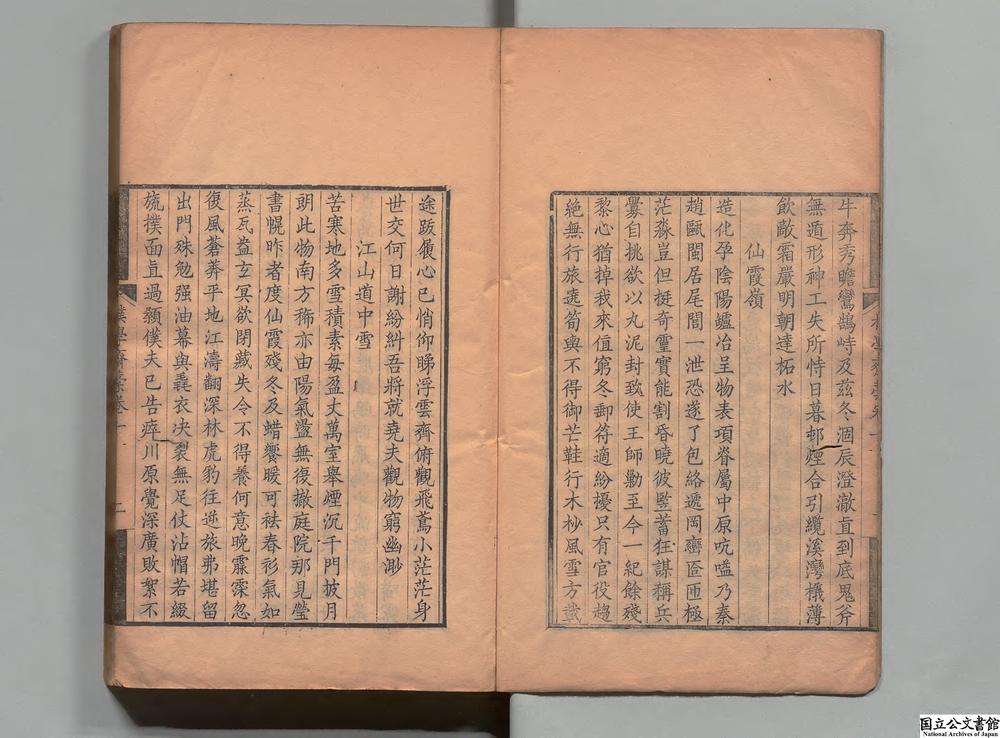 牛奔秀瞻鸞鵠峙及茲冬涸辰澄澈直到底鬼斧
無遁形神工失所恃日暮邨煙合引纜溪灣檥薄
飲敵霜嚴明朝達柘水
仙霞嶺
造化孕陰陽鑪冶呈物表項脊屬中原吭嗌乃秦
趙甌閩居尾閭一泄恐遂了包絡遞岡巒匼匝極
茫淼豈但挺奇靈實能割昏曉彼豎蓄狂謀稱兵
釁自挑欲以丸泥封致使王師勦至今一紀餘殘
黎心猶掉我來值窮冬郵符適紛擾只有官役趨
絕無行旅遶筍輿不得御芒鞋行木杪風雪方戴
途跋履心已悄仰睇浮雲齊俯觀飛鳶小茫茫身
世交何日謝紛糾吾將就堯夫觀物窮幽渺
江山道中雪
苦寒地多雪積素每盈丈萬室舉煙沉千門披月
朗此物南方稀亦由陽氣盪無復撤庭院那見瑩
書幌昨者度仙霞殘冬及蜡饗暖可祛春衫氣如
蒸瓦盎玄冥欲閉藏失令不得養何意晚霢霂忽
復風蒼莽平地江濤翻深林虎豹往逆旅弗堪留
出門殊勉强油幕與毳衣决裂無足仗沾帽若綴
旒撲面直過顙僕夫已告瘁川原覺深廣敗絮不
樸學齋藁卷一
国立公文書館
National Archives of Japan